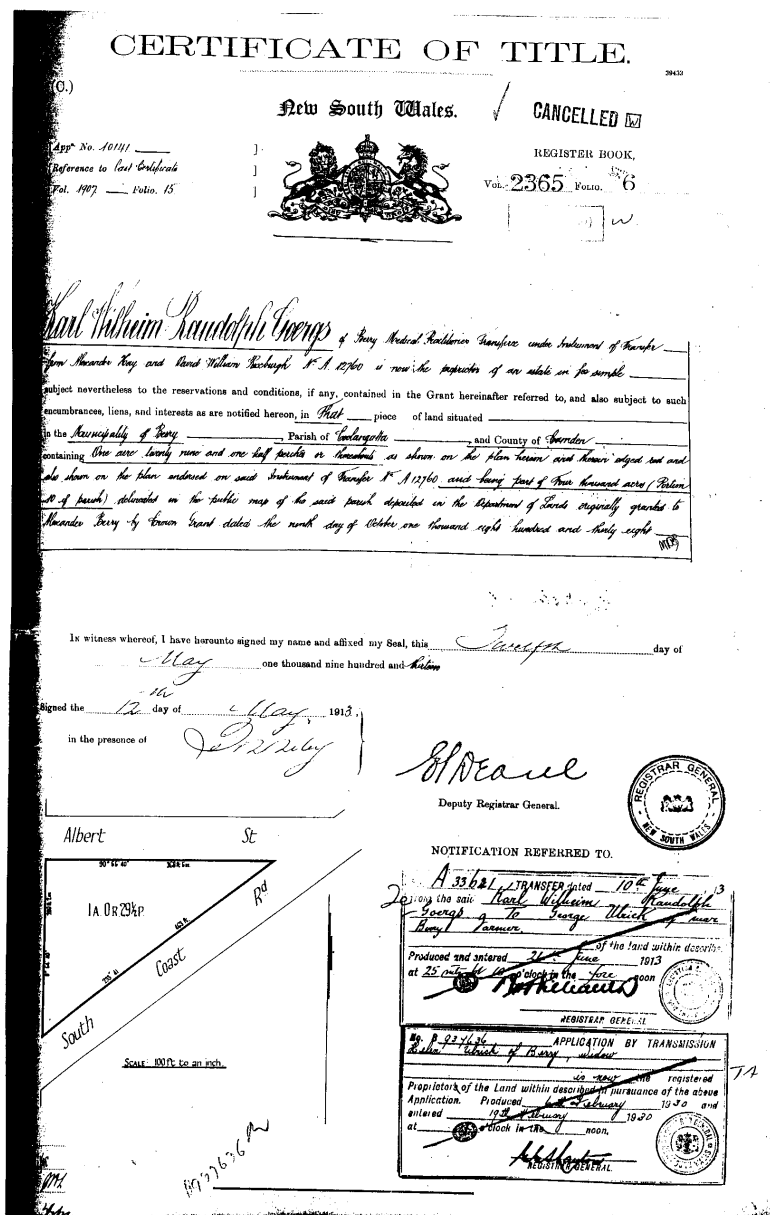 CERTIFICATE OF TITLE.
39433
(C.)
New South Wales.
CANCELLED W
Appn No. 10141
REGISTER BOOK,
Reference to Last Certificate
Vol. 1907 Folio. 15
Vol. 2365 Folio. 6
W
Karl Wilheim Randolph Goergs of Berry Medical Practitioner Transferee under Instrument of Transfer
from Alexander Hay and David William Roxburgh No A 12760 is now the proprietor of an estate in fee simple
subject nevertheless to the reservations and conditions, if any, contained in the Grant hereinafter referred to, and also subject to such
encumbrances, liens, and interests as are notified hereon, in That piece of land situated
in the Municipality of Berry, Parish of Coolangatta, and County of Camden
containing One acre twenty nine and one half perches or thereabouts as shown on the plan hereon and therein edged red and
also shown on the plan endorsed on said Instrument of Transfer No A 12760 and being part of Four thousand acres (Portion
10 of parish) delineated in the public map of the said parish deposited in the Department of Lands originally granted to
Alexander Berry by Crown Grant dated the ninth day of October one thousand eight hundred and thirty eight
In witness whereof, I have hereunto signed my name and affixed my Seal, this Twelfth day of
May one thousand nine hundred and thirteen
Signed the 12th day of May, 1913,
in the presence of
Deputy Registrar General.
REGISTRAR GENERAL
NEW SOUTH WALES
Albert St
1A. 0R 29½P.
South Coast Rd
SCALE: 100 ft to an inch.
NOTIFICATION REFERRED TO.
A 33621 TRANSFER dated 10th June 13
from the said Karl Wilheim Randolph
Goergs to George Ulrick of near
Berry Farmer.
of the land within described
Produced and entered 26th June 1913
at 25 o'clock in the fore noon
REGISTRAR GENERAL
No. B 937636 APPLICATION BY TRANSMISSION
Ulrick of Berry, widow
is now the registered
Proprietors of the Land within described in pursuance of the above
Application. Produced February 1930 and
entered 19th February 1930
at o'clock in the noon.
REGISTRAR GENERAL.
B937636